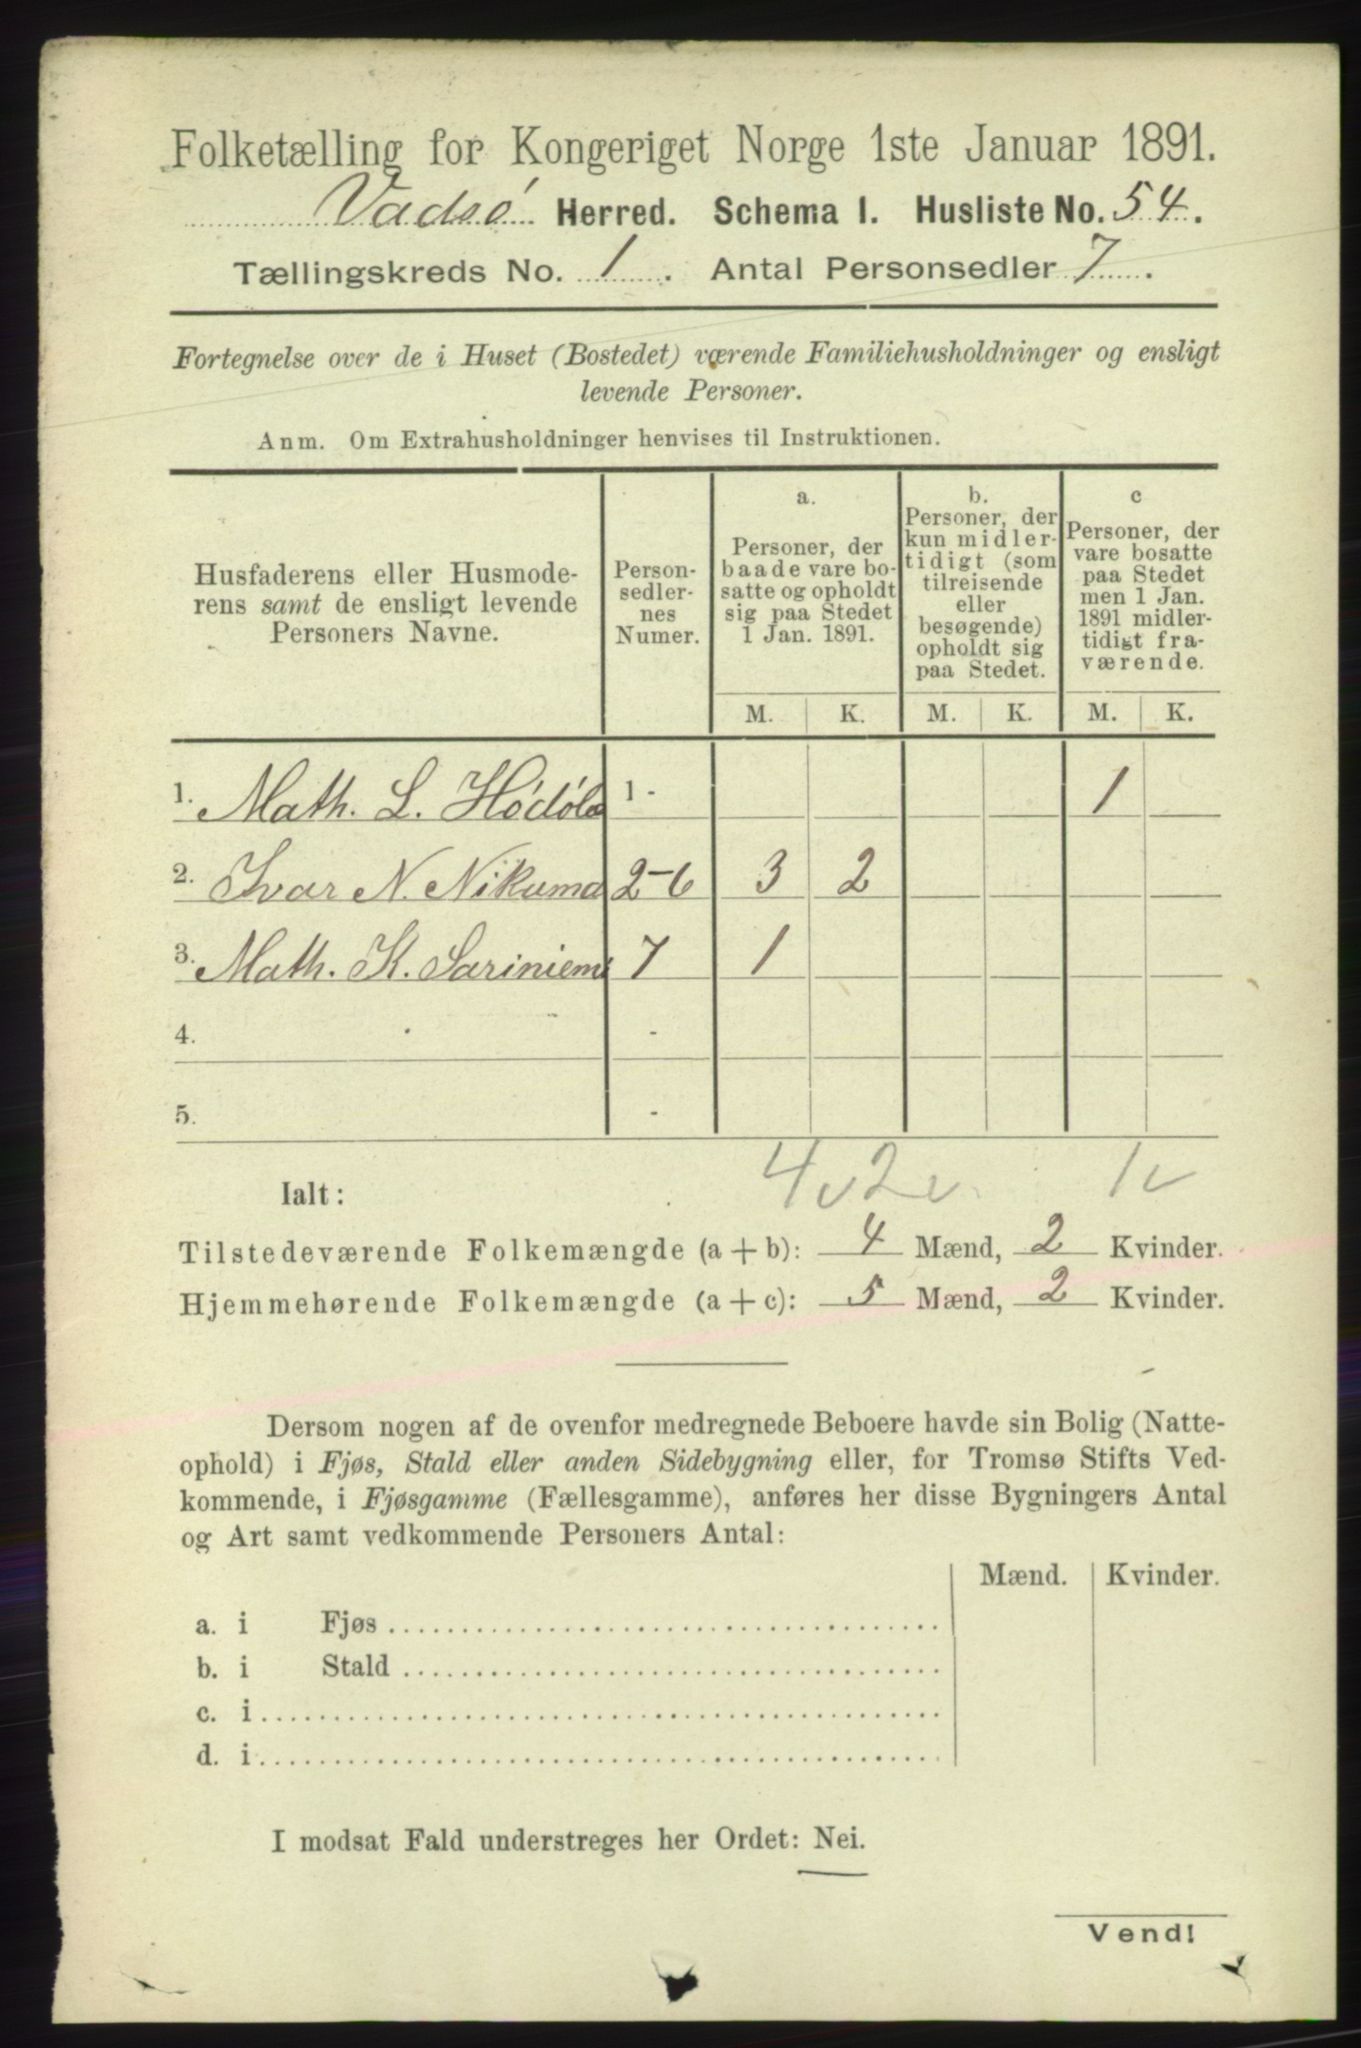 Folketælling for Kongeriget Norge 1ste Januar 1891.
Vadsö Herred. Schema I. Husliste No. 54.
Tællingskreds No. 1. Antal Personsedler 7.
Fortegnelse over de i Huset (Bostedet) værende Familiehusholdninger og ensligt
levende Personer.
Anm. Om Extrahusholdninger henvises til Instruktionen.
Husfaderens eller Husmode-
rens samt de ensligt levende
Personers Navne.
Person-
sedler-
nes
Numer.
a.
Personer, der
baade vare bo-
satte og opholdt
sig paa Stedet
1 Jan. 1891.
b.
Personer, der
kun midler-
tidigt (som
tilreisende
eller
besøgende)
opholdt sig
paa Stedet.
c
Personer, der
vare bosatte
paa Stedet
men 1 Jan.
1891 midler-
tidigt fra-
værende.
M. K. M. K. M. K.
1. Math. L. 1 - 1
2. Ivar N. Nikuma 2-6 3 2
3. Math. K. Sariniemi 7 1
4. -
5. -
Ialt: 4 2 1
Tilstedeværende Folkemængde (a + b): 4 Mænd, 2 Kvinder.
Hjemmehørende Folkemængde (a + c): 5 Mænd, 2 Kvinder.
Dersom nogen af de ovenfor medregnede Beboere havde sin Bolig (Natte-
ophold) i Fjøs, Stald eller anden Sidebygning eller, for Tromsø Stifts Ved-
kommende, i Fjøsgamme (Fællesgamme), anføres her disse Bygningers Antal
og Art samt vedkommende Personers Antal:
Mænd. Kvinder.
a. i Fjøs
b. i Stald
c. i
d. i
I modsat Fald understreges her Ordet: Nei.
Vend!